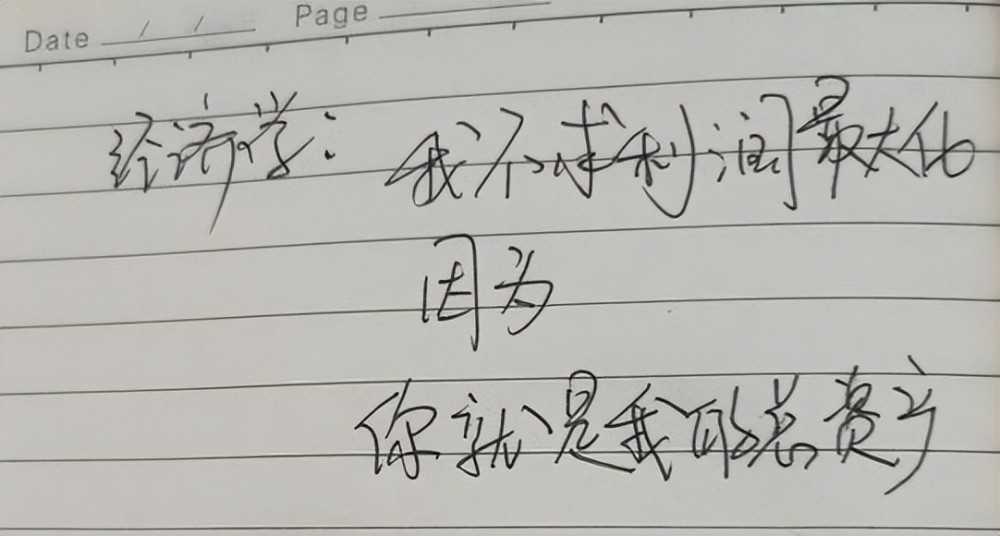 Date / / Page
经济学：我不求利润最大化
因为
你就是我的总资产